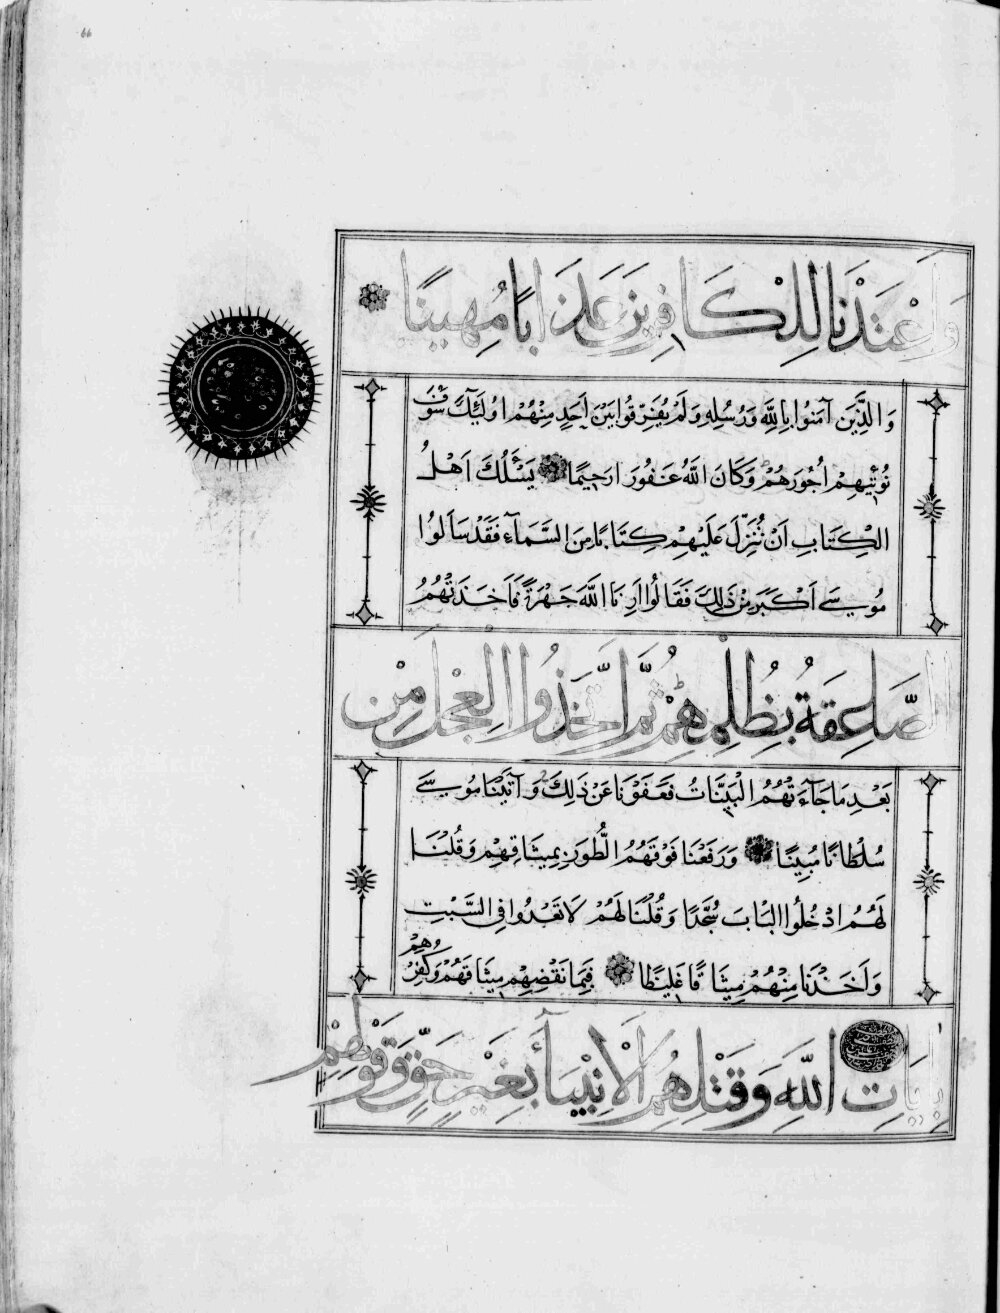 66
وَاَعْتَدْنَا لِلْكَافِرِينَ عَذَابًا مُهِينًا
وَالَّذِينَ آمَنُوا بِاللَّهِ وَرُسُلِهِ وَلَمْ يُفَرِّقُوا بَيْنَ اَحَدٍ مِنْهُمْ اُولَئِكَ سَوْفَ
نُؤْتِيهِمْ اُجُورَهُمْ وَكَانَ اللَّهُ غَفُورًا رَحِيمًا يَسْئَلُكَ اَهْلُ
الْكِتَابِ اَنْ تُنَزِّلَ عَلَيْهِمْ كِتَابًا مِنَ السَّمَآءِ فَقَدْ سَاَلُوا
مُوسَى اَكْبَرَ مِنْ ذَلِكَ فَقَالُوا اَرِنَا اللَّهَ جَهْرَةً فَاَخَذَتْهُمُ
الصَّاعِقَةُ بِظُلْمِهِمْ ثُمَّ اتَّخَذُوا الْعِجْلَ مِنْ
بَعْدِ مَا جَآءَتْهُمُ الْبَيِّنَاتُ فَعَفَوْنَا عَنْ ذَلِكَ وَآتَيْنَا مُوسَى
سُلْطَانًا مُبِينًا وَرَفَعْنَا فَوْقَهُمُ الطُّورَ بِمِيثَاقِهِمْ وَقُلْنَا
لَهُمُ ادْخُلُوا الْبَابَ سُجَّدًا وَقُلْنَا لَهُمْ لَا تَعْدُوا فِي السَّبْتِ
وَاَخَذْنَا مِنْهُمْ مِيثَاقًا غَلِيظًا فَبِمَا نَقْضِهِمْ مِيثَاقَهُمْ وَكُفْرِهِمْ
بِآيَاتِ اللَّهِ وَقَتْلِهِمُ الْاَنْبِيَآءَ بِغَيْرِ حَقٍّ وَقَوْلِهِمْ